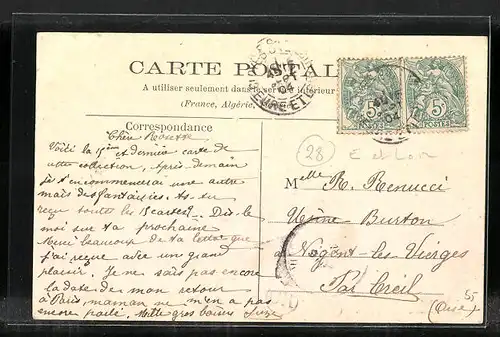 CARTE POSTALE
A utiliser seulement dans le service intérieur
(France, Algérie,
Correspondance
Chère Rosette
Voici la 15ème et dernière carte de
cette collection, Après-demain
je t'en commencerai une autre
mais des fantaisies: As-tu
reçu toutes les 15 cartes? Dis-le
moi sur ta prochaine
Merci beaucoup de ta lettre que
j'ai reçue avec une grand
plaisir. Je ne sais pas encore
la date de mon retour
à Paris, maman ne m'en a pas
encore parlé. Mille gros baisers
28
E et Loir
Melle R. Renucci
Usine Burton
à Nogent-les Vierges
Par Creil
(Oise)
55
5c
POSTES
5c
POSTES
04
04